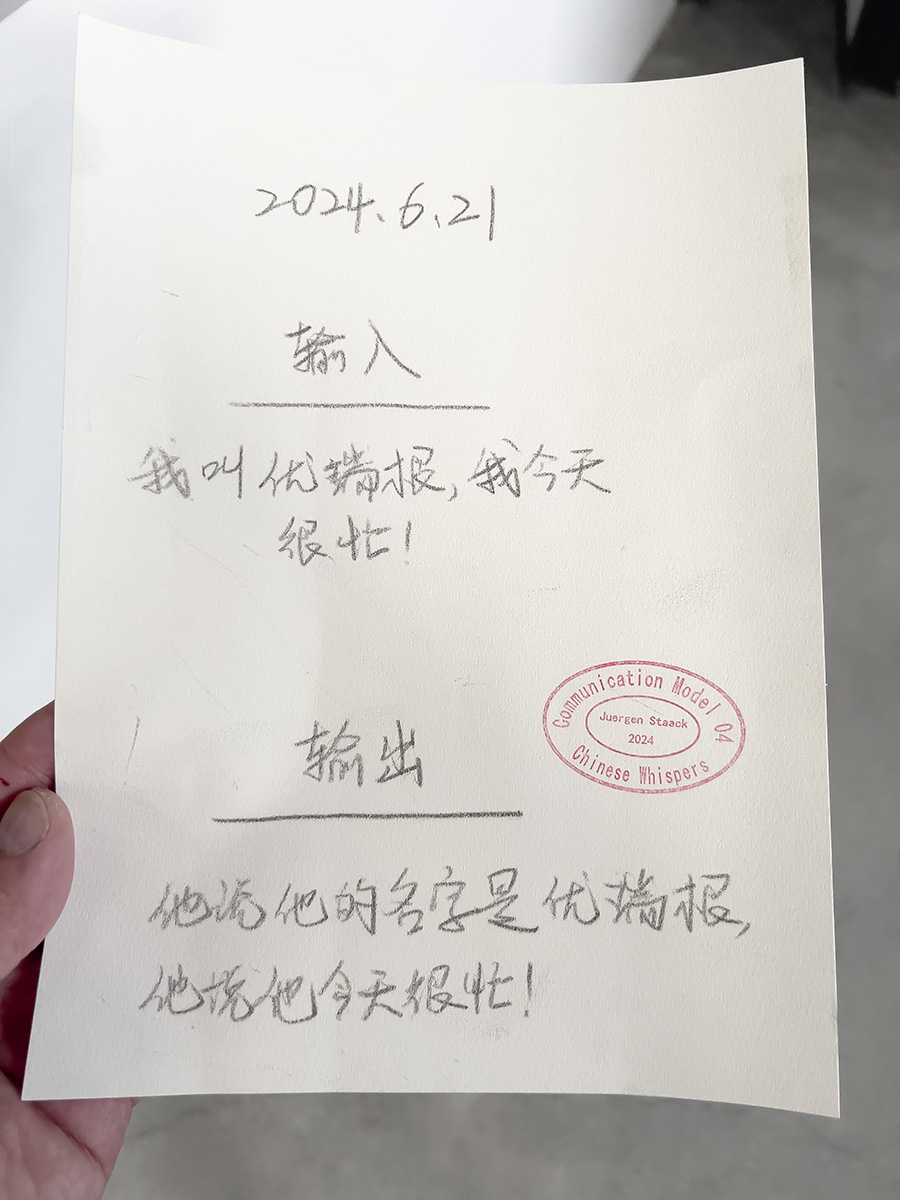 2024.6.21
输入
我叫优瑞报,我今天
很忙!
Communication Model 04
Juergen Staack
2024
Chinese Whispers
输出
他说他的名字是优瑞报,
他说他今天很忙!